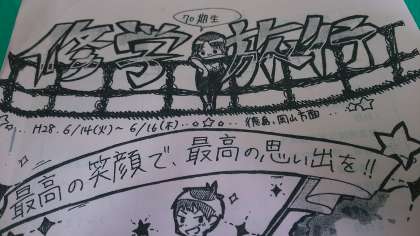 70期生
修学旅行
H28.6/14(火)～6/16(木)...徳島、岡山方面...
最高の笑顔で、最高の思い出を!!